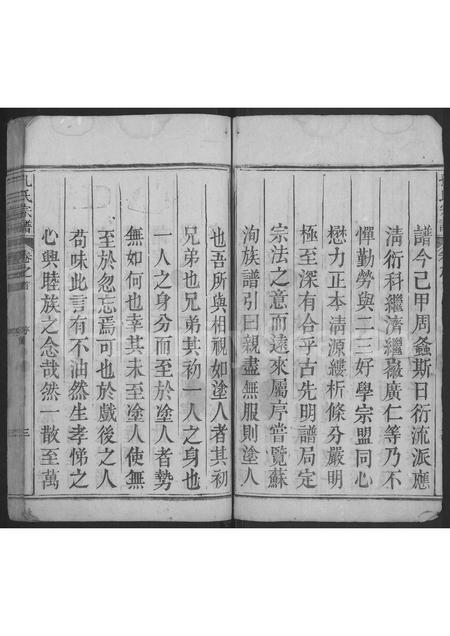 譜今已甲周螽斯日衍流派應
清衍科繼清繼嶽廣仁等乃不
憚勤勞與二三好學宗盟同心
懋力正本清源縷析條分嚴明
極至深有合乎古先明譜局定
宗法之意而遠來屬序嘗覽蘇
洵族譜引曰親盡無服則塗人
也吾所與相視如塗人者其初
兄弟也兄弟其初一人之身也
一人之身分而至於塗人者勢
無如何也幸其未至塗人使無
至於忽忘焉可也於戲後之人
苟味此言有不油然生孝悌之
心興睦族之念哉然一散至萬
氏宗譜
卷之首
三